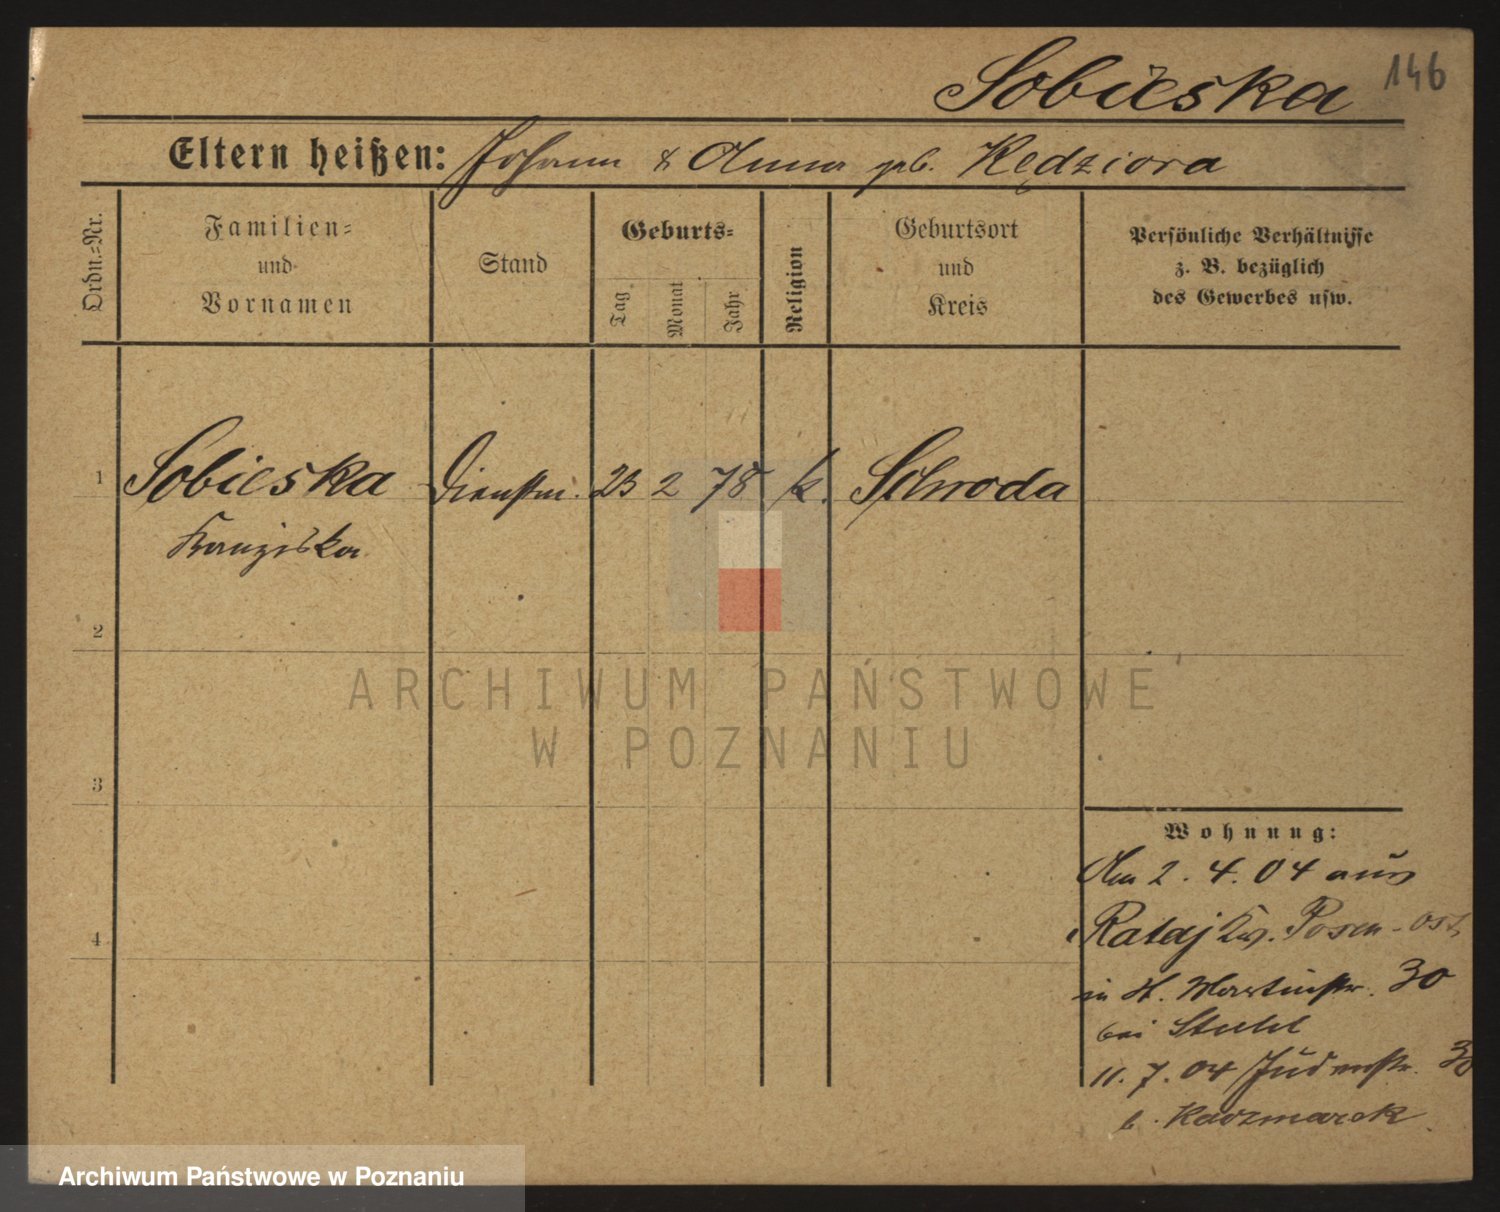 Sobieska 146
Eltern heißen: Johann & Anna geb. Kędziora
Ordn.-Nr.
Familien-
und
Vornamen
Stand
Geburts-
Tag
Monat
Jahr
Religion
Geburtsort
und
Kreis
Persönliche Verhältnisse
z. B. bezüglich
des Gewerbes usw.
1 Sobieska Dienstm. 23 2 78 k. Schroda
Franziska
2
ARCHIWUM PAŃSTWOWE
W POZNANIU
3
Wohnung:
Am 2. 4. 04 aus
4 Rataj Posen-Ost
in St. Martinstr. 30
bei
11. 7. 04 Judenstr. 30
b. Kaczmarek
Archiwum Państwowe w Poznaniu